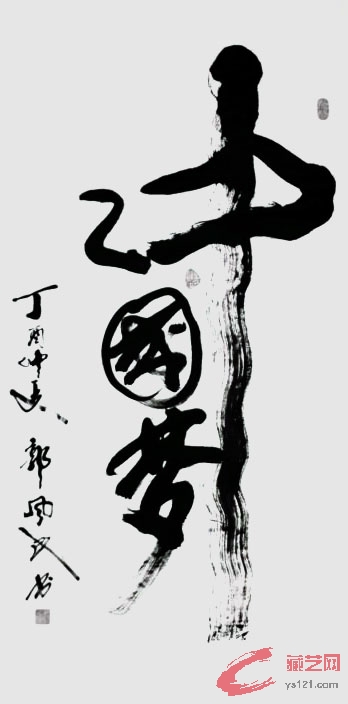 中國梦
丁酉仲夏
郭風武书
藏艺网
ys121.com